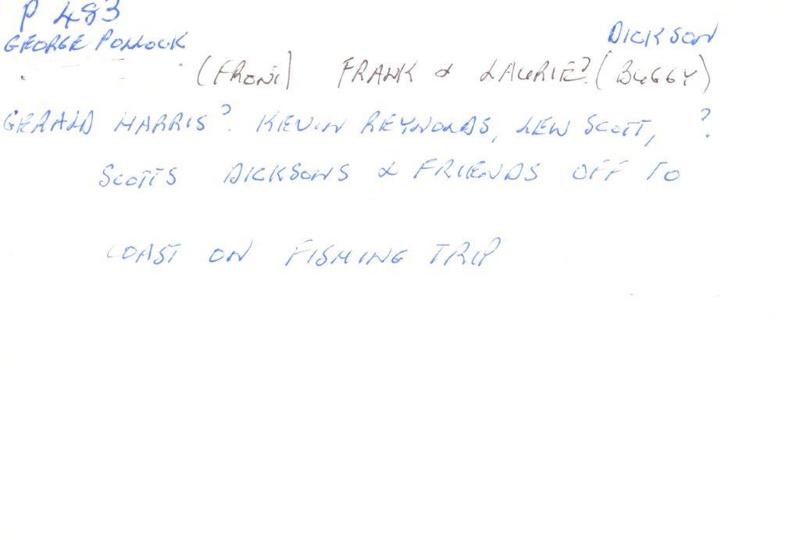 P 483
GEORGE POLLOCK DICKSON
(FRONT) FRANK & LAURIE? (BUGGY)
GERALD HARRIS? KEVIN REYNOLDS, LEW SCOTT, ?
SCOTTS DICKSONS & FRIENDS OFF TO
COAST ON FISHING TRIP